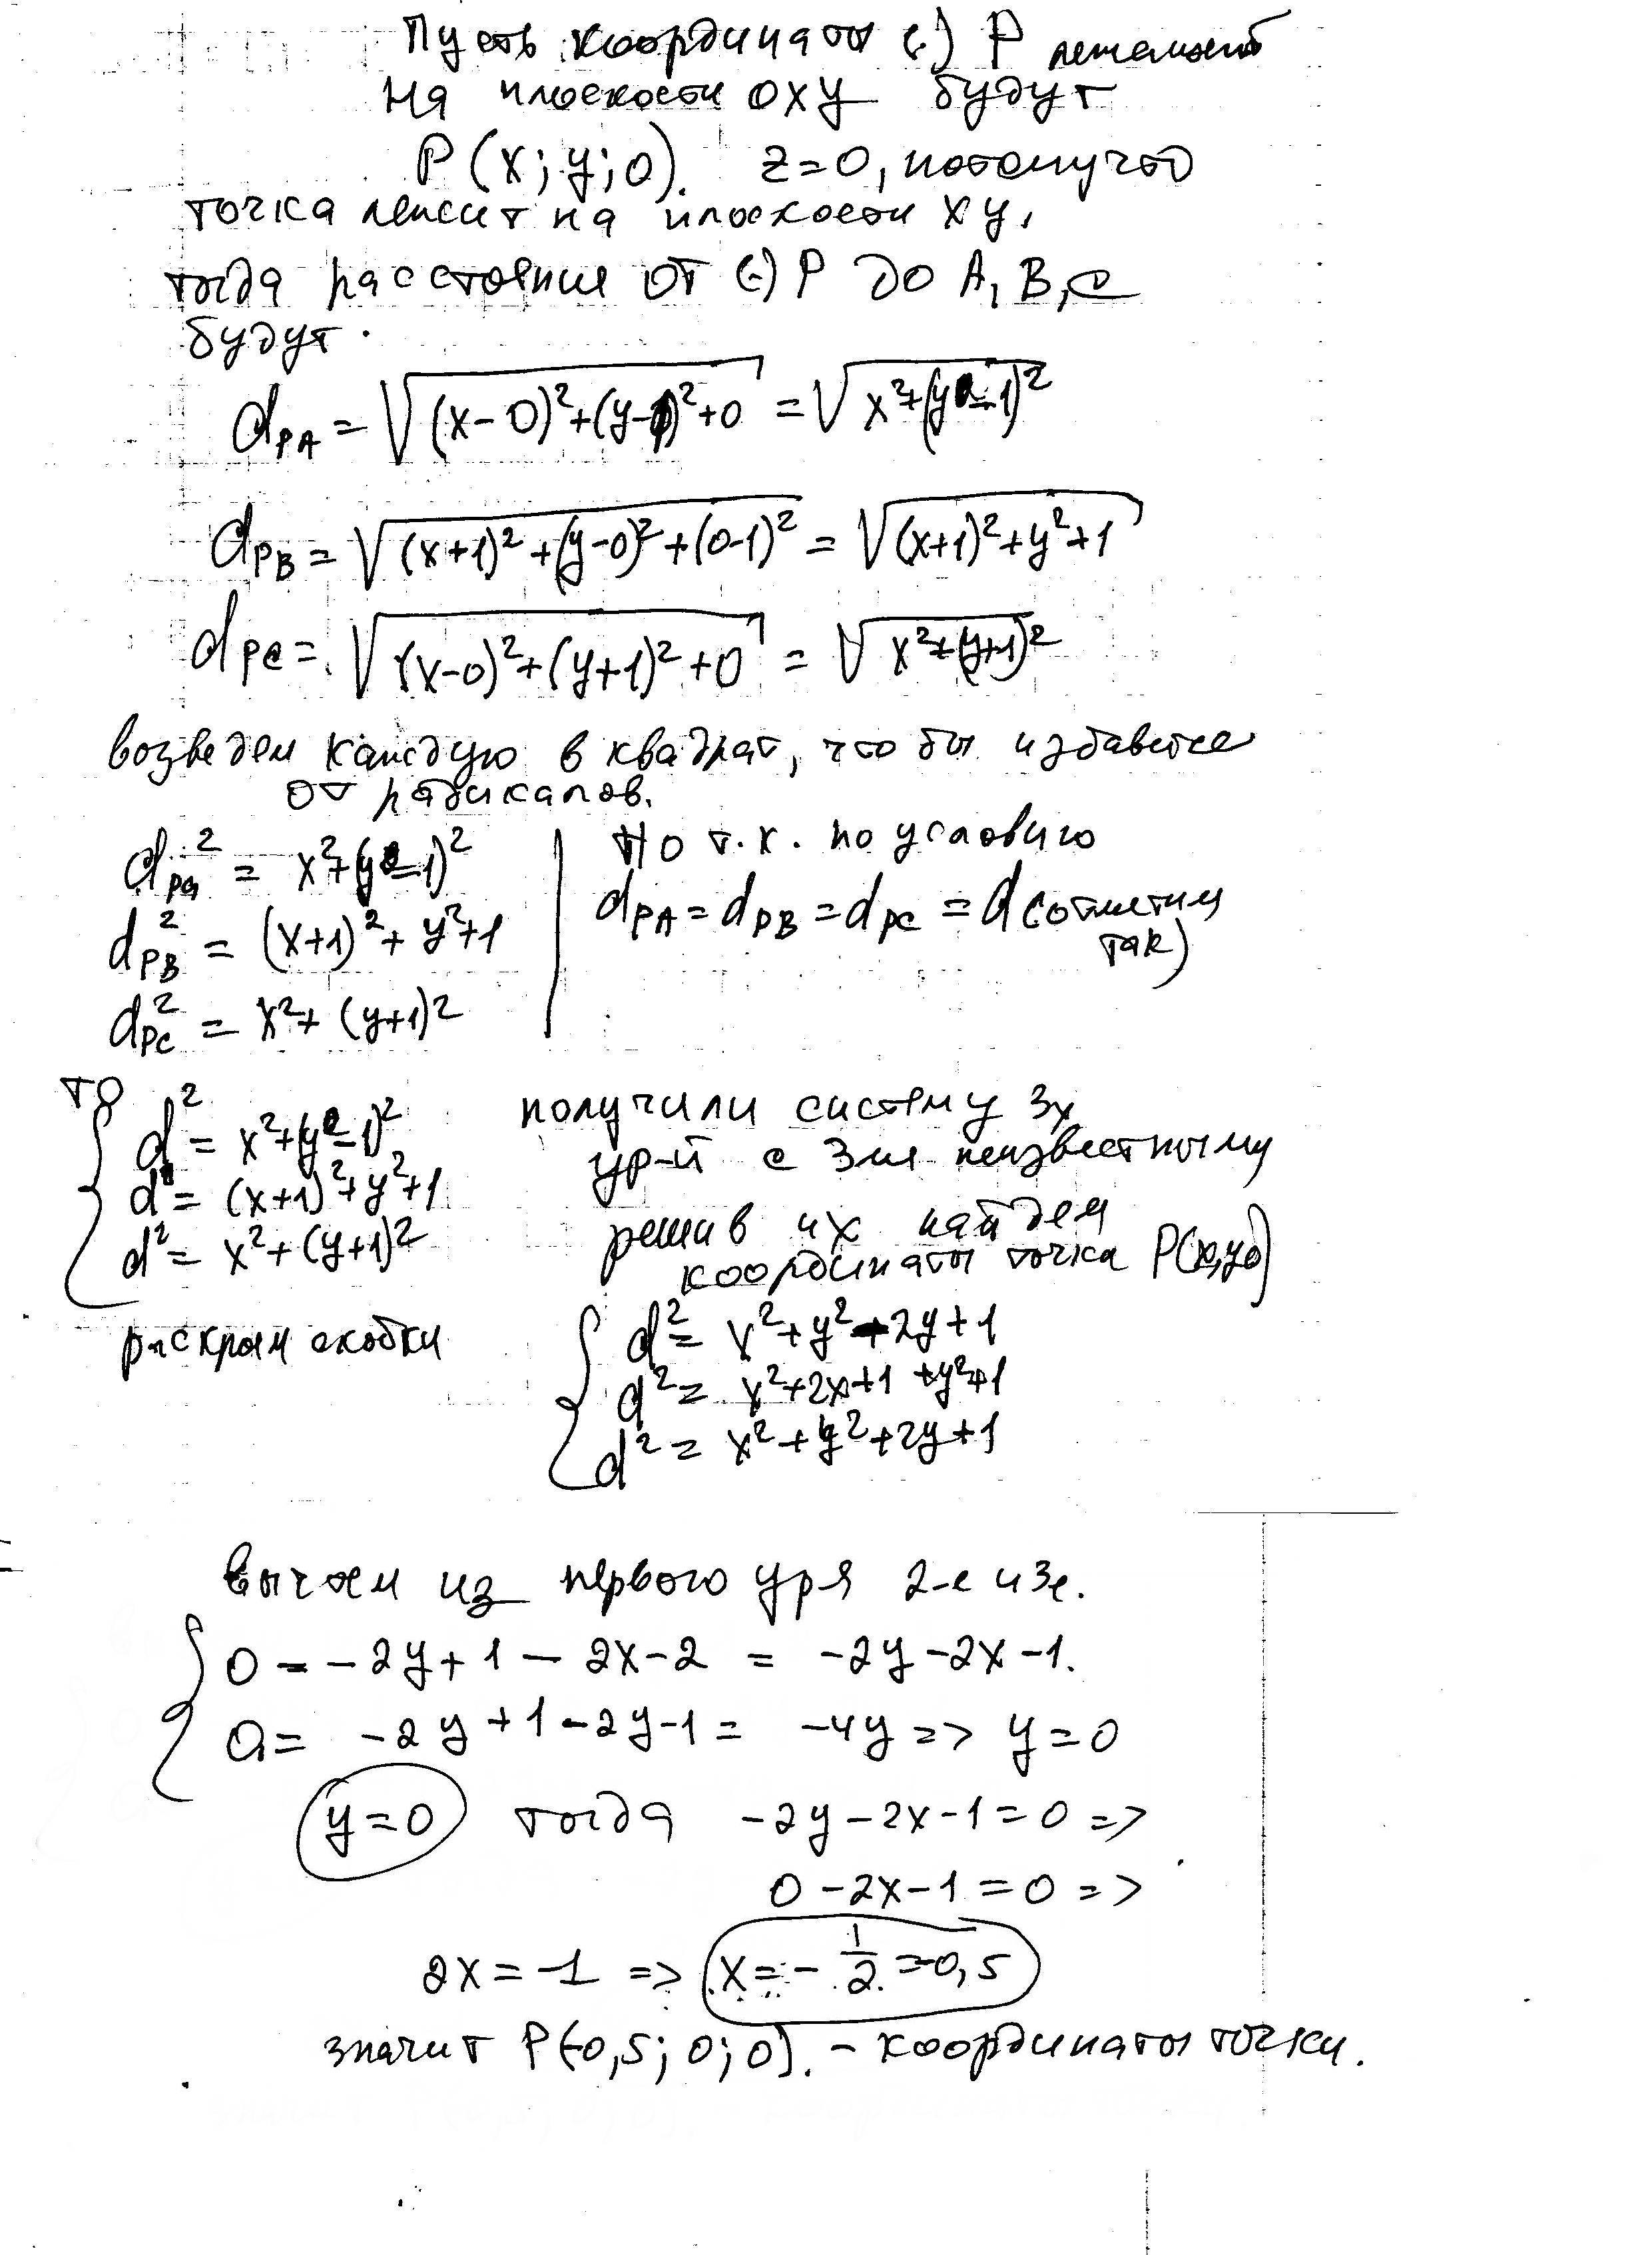 Пусть координаты (·) P лежащей
на плоскости OXY будут
P(x; y; 0). z=0, потому что
точка лежит на плоскости xy,
тогда расстояния от (·) P до A, B, C
будут.
d_PA = √((x-0)²+(y-1)²+0) = √(x²+(y-1)²)
d_PB = √((x+1)²+(y-0)²+(0-1)²) = √((x+1)²+y²+1)
d_PC = √((x-0)²+(y+1)²+0) = √(x²+(y+1)²)
возведем каждую в квадрат, что бы избавится
от радикалов.
d_PA² = x²+(y-1)²
d_PB² = (x+1)²+y²+1
d_PC² = x²+(y+1)²
Но т.к. по условию
d_PA = d_PB = d_PC = d (отметим
так)
то
d² = x²+(y-1)²
d² = (x+1)²+y²+1
d² = x²+(y+1)²
получили систему 3х
ур-й с 3мя неизвестными
решив их найдем
координаты точка P(x,y,0)
раскрым скобки
d² = x²+y²-2y+1
d² = x²+2x+1+y²+1
d² = x²+y²+2y+1
вычтем из первого ур-я 2-е и 3е.
0 = -2y+1-2x-2 = -2y-2x-1.
0 = -2y+1-2y-1 = -4y => y=0
y=0 тогда -2y-2x-1=0 =>
0-2x-1=0 =>
2x=-1 => x=-1/2=0,5
значит P(-0,5; 0; 0). - координаты точки.